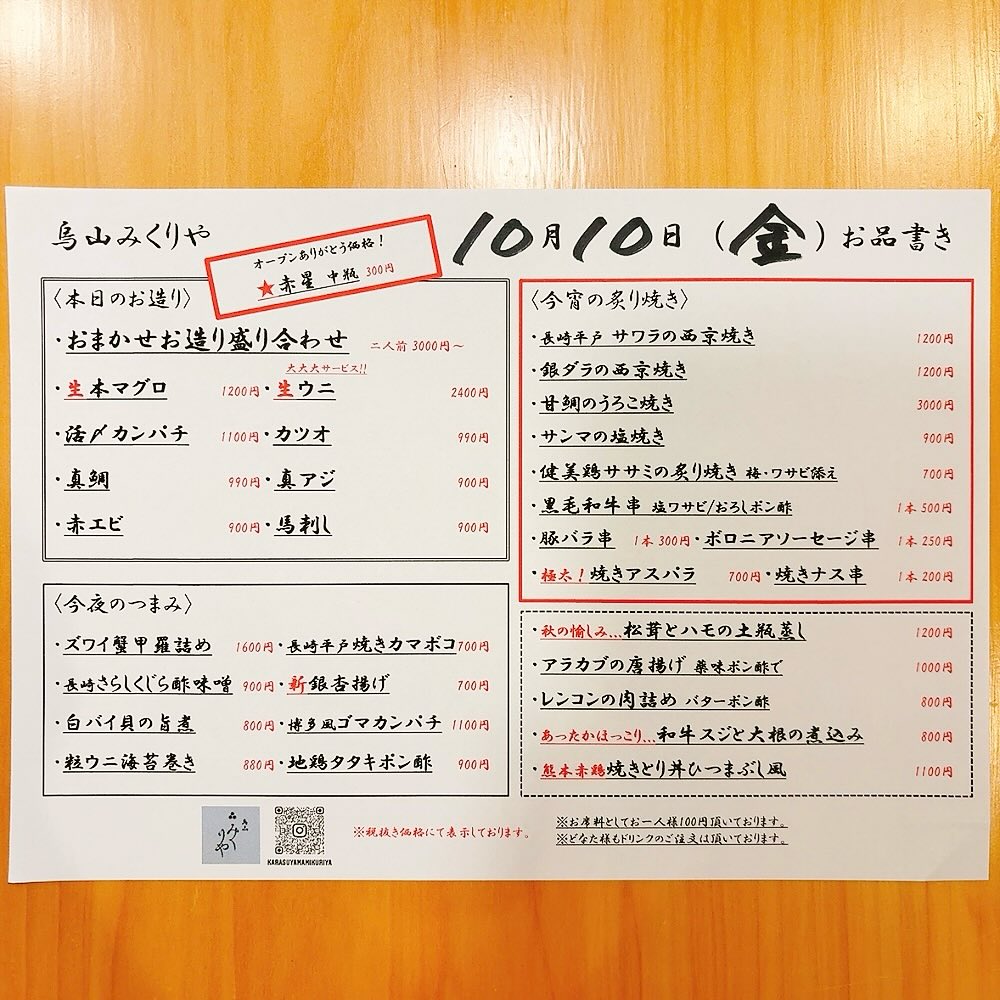 烏山みくりや
オープンありがとう価格!
★赤星 中瓶 300円
10月10日(金)お品書き
〈本日のお造り〉
・おまかせお造り盛り合わせ 二人前 3000円~
大大大サービス!!
・生本マグロ 1200円・生ウニ 2400円
・活〆カンパチ 1100円・カツオ 990円
・真鯛 990円・真アジ 900円
・赤エビ 900円・馬刺し 900円
〈今夜のつまみ〉
・ズワイ蟹甲羅詰め 1600円・長崎平戸焼きカマボコ 700円
・長崎さらしくじら酢味噌 900円・新銀杏揚げ 700円
・白バイ貝の旨煮 800円・博多風ゴマカンパチ 1100円
・粒ウニ海苔巻き 880円・地鶏タタキポン酢 900円
〈今宵の炙り焼き〉
・長崎平戸 サワラの西京焼き 1200円
・銀ダラの西京焼き 1200円
・甘鯛のうろこ焼き 3000円
・サンマの塩焼き 900円
・健美鶏ササミの炙り焼き 梅・ワサビ添え 700円
・黒毛和牛串 塩ワサビ/おろしポン酢 1本 500円
・豚バラ串 1本 300円・ボロニアソーセージ串 1本 250円
・極太!焼きアスパラ 700円・焼きナス串 1本 200円
・秋の愉しみ…松茸とハモの土瓶蒸し 1200円
・アラカブの唐揚げ 薬味ポン酢で 1000円
・レンコンの肉詰め バターポン酢 800円
・あったかほっこり…和牛スジと大根の煮込み 800円
・熊本赤鶏焼きとり丼ひつまぶし風 1100円
みくりや
KARASUYAMAMIKURIYA
※税抜き価格にて表示しております。
※お席料としてお一人様100円頂いております。
※どなた様もドリンクのご注文は頂いております。